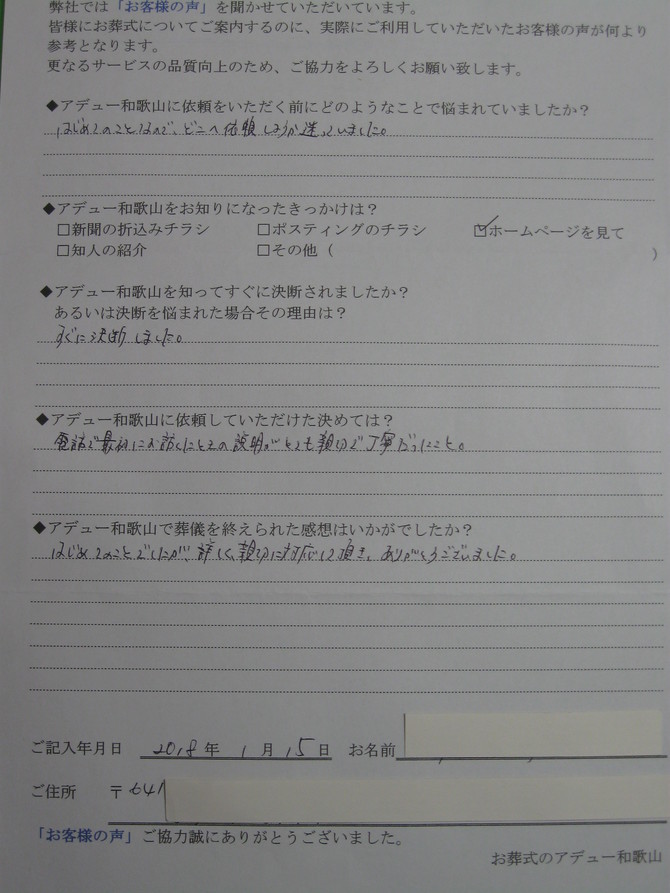 弊社では「お客様の声」を聞かせていただいています。
皆様にお葬式についてご案内するのに、実際にご利用していただいたお客様の声が何より
参考となります。
更なるサービスの品質向上のため、ご協力をよろしくお願い致します。
◆アデュー和歌山に依頼をいただく前にどのようなことで悩まれていましたか？
はじめてのことなので、どこへ依頼しようか迷っていました。
◆アデュー和歌山をお知りになったきっかけは？
□新聞の折込みチラシ □ポスティングのチラシ ☑ホームページを見て
□知人の紹介 □その他（ ）
◆アデュー和歌山を知ってすぐに決断されましたか？
あるいは決断を悩まれた場合その理由は？
すぐに決断しました。
◆アデュー和歌山に依頼していただけた決めては？
電話で最初にお話したときの説明がとても親切で丁寧だったこと。
◆アデュー和歌山で葬儀を終えられた感想はいかがでしたか？
はじめてのことでしたが、詳しく親切に対応して頂き、ありがとうございました。
ご記入年月日 2018年 1月15日 お名前
ご住所 〒641
「お客様の声」ご協力誠にありがとうございました。
お葬式のアデュー和歌山